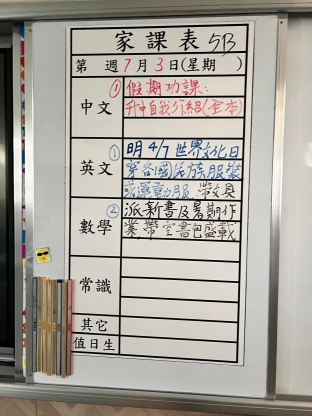 家課表 5B
第 週 7月3日(星期 )
中文 ① 假期功課:
升中自我介紹(全本)
① 明 4/7 世界文化日
英文 穿各國民族服裝
或運動服、帶文具
② 派新書及暑期作
數學 業,帶空書包盛載
常識
其它
值日生